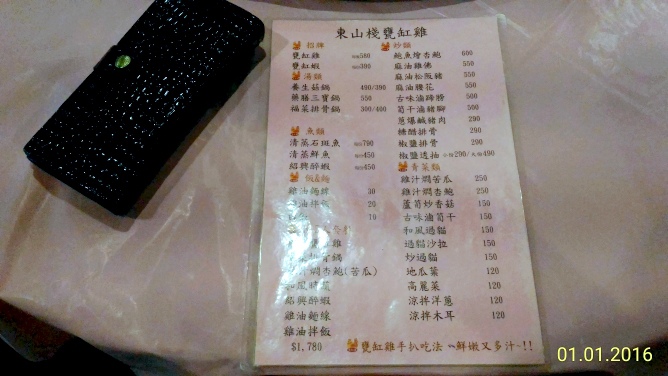 東山棧甕缸雞
招牌
甕缸雞 580
甕缸蝦 380
湯類
養生菇鍋 490/390
藥膳三寶鍋 550
福菜排骨鍋 300/400
魚類
清蒸石斑魚 700
清蒸鮮魚 450
紹興醉蝦 450
飯&麵
雞油麵線 30
油拌飯 20
10
雞
排骨鍋
燜杏鮑(苦瓜)
和風時蔬
紹興醉蝦
雞油麵線
雞油拌飯
$1,780
炒類
鮑魚燴杏鮑 600
麻油雞佛 550
麻油松阪豬 550
麻油腰花 550
古味滷蹄膀 500
筍干滷豬腳 500
蔥爆鹹豬肉 290
糖醋排骨 290
椒鹽排骨 290
椒鹽透抽 小290/大490
青菜類
雞汁燜苦瓜 250
雞汁燜杏鮑 250
蘆筍炒香菇 150
古味滷筍干 150
和風過貓 150
過貓沙拉 150
炒過貓 150
地瓜葉 120
高麗菜 120
涼拌洋蔥 120
涼拌木耳 120
甕缸雞手扒吃法~鮮嫩又多汁~!!
01.01.2016